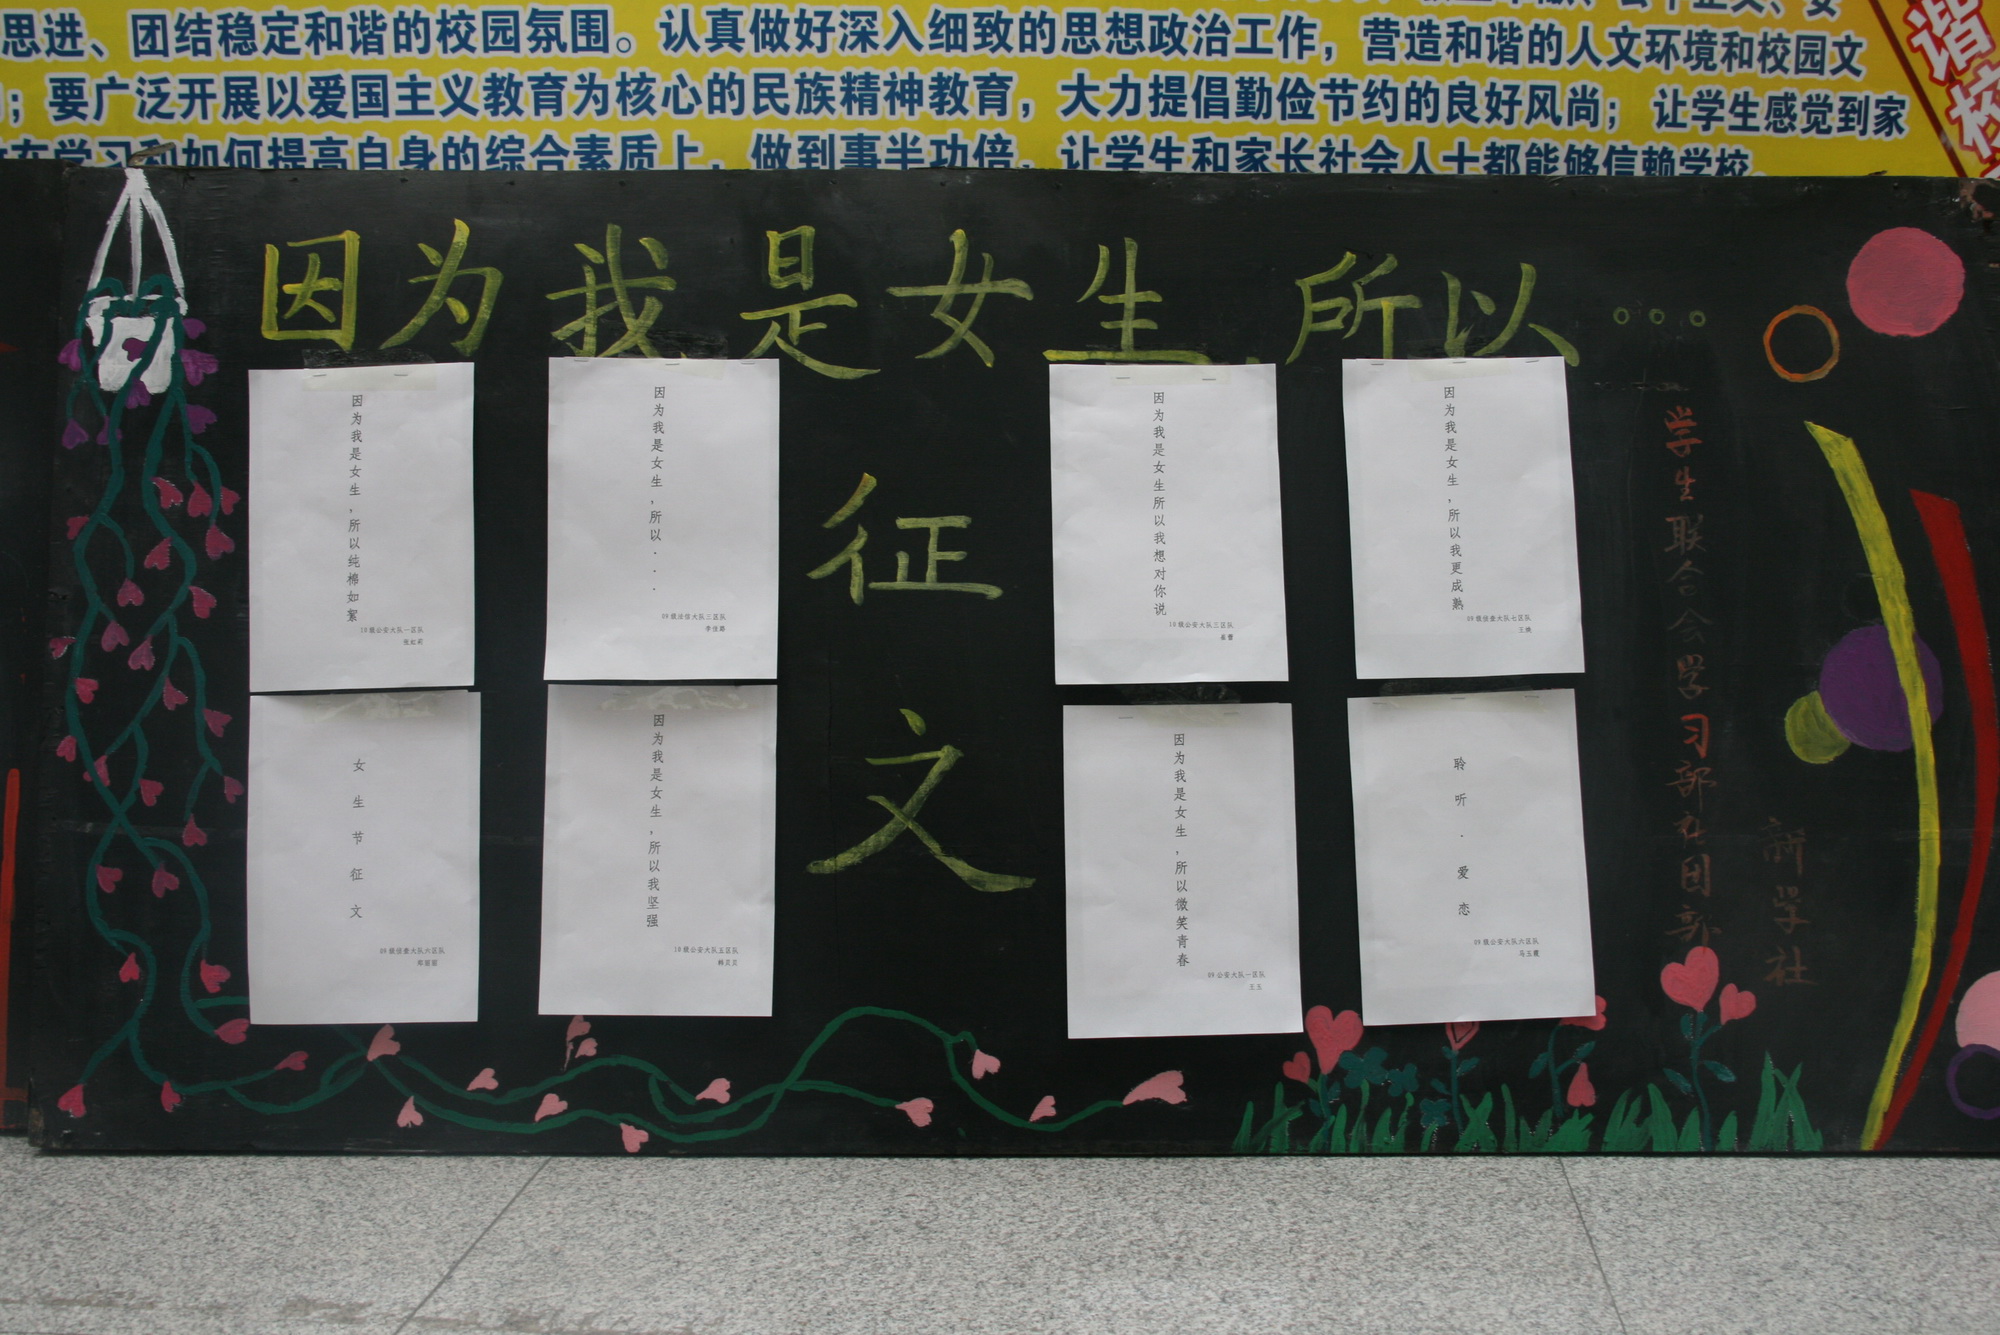 思进、团结稳定和谐的校园氛围。认真做好深入细致的思想政治工作，营造和谐的人文环境和校园文
；要广泛开展以爱国主义教育为核心的民族精神教育，大力提倡勤俭节约的良好风尚；让学生感觉到家
在学习和如何提高自身的综合素质上，做到事半功倍，让学生和家长社会人士都能够信赖学校。
谐
校
因为我是女生,所以。。。
征文
因为我是女生，所以纯棉如絮
10级公安大队一区队
因为我是女生，所以...
09级法信大队三区队
因为我是女生所以我想对你说
10级公安大队三区队
崔蕾
因为我是女生，所以我更成熟
09级侦查大队七区队
女生节征文
09级侦查大队六区队
郑丽丽
因为我是女生，所以我坚强
10级公安大队五区队
因为我是女生，所以微笑青春
09公安大队一区队
王玉
聆听·爱恋
09级公安大队六区队
学生联合会学习部社团部
新学社